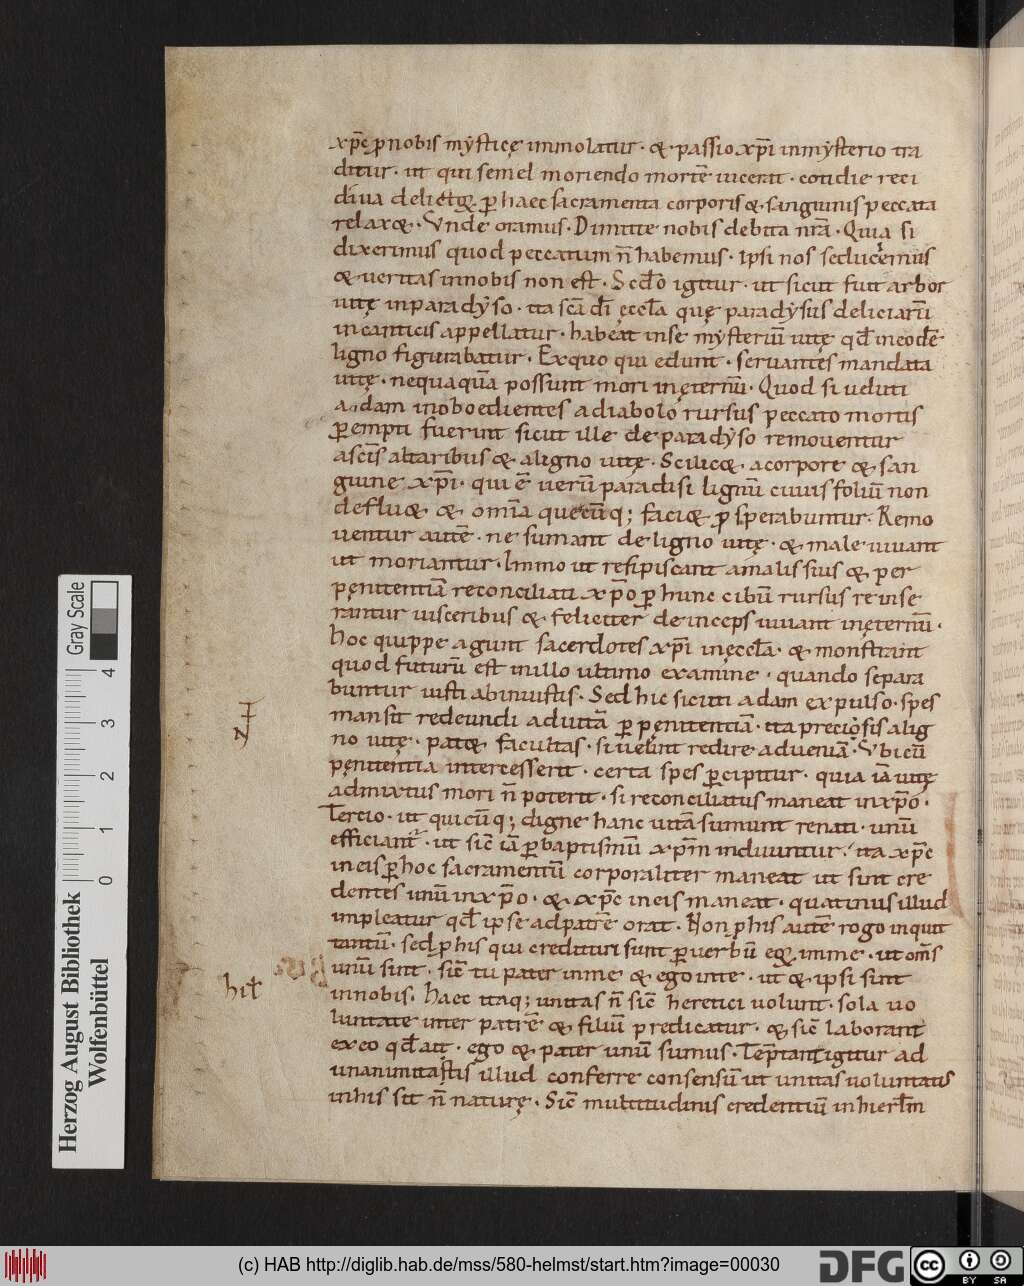 xp̄c ꝓ nobis mẏsticę immolatur · & passio xp̄i in mẏsterio tra
ditur · ut qui semel moriendo mortē uicerat · cotidie reci
diua delictoꝝ ꝑ haec sacramenta corporis & sanguinis peccata
relax& · Vnde oramus · Dimitte nobis debita nr̄a · Quia si
dixerimus quod peccatum n̄ habemus · ipsi nos seducemus
& ueritas in nobis non est · Scd̄o igitur · ut sicut fuit arbor
uitę in paradẏso · ita scā dī ęccła quę paradẏsus deliciarū
in canticis appellatur · habeat in se mẏsteriū uitę qd̄ in eodē
ligno figurabatur · Ex quo qui edunt · seruantes mandata
uitę · nequaquā possunt mori in ęternū · Quod si ueluti
adam inoboedientes a diabolo rursus peccato mortis
ꝑempti fuerint sicut ille de paradẏso remouentur
a scīs altaribus & a ligno uitę · Scilic& · a corpore & san
guine xp̄i · qui ē uerū paradisi lignū cuius foliū non
deflu& & omīa quęcūq; faci& ꝓsperabuntur · Remo
uentur autē · ne sumant de ligno uitę · & male uiuant
ut moriantur · Immo ut resipiscant a malis suis & per
pęnitentiā reconciliati xp̄o ꝑ hunc cibū rursus reinse
rantur uisceribus & feliciter deinceps uiuant in ęternū ·
Hoc quippe agunt sacerdotes xp̄i in ęccła · & monstrant
quod futurū est in illo ultimo examine · quando separa
buntur iusti ab iniustis · Sed hic sicuti adam expulso · spes
mansit redeundi ad uitā ꝑ pęnitentiā · ita preciosis a lig
no uitę · pat& facultas · si uelint redire ad ueniā · Vbicū
pęnitentia intercesserit · certa spes ꝑcipitur · quia iā uitę
admixtus mori n̄ poterit · si reconciliatus maneat in xp̄o ·
Tercio · ut quicūq; digne hanc uitā sumunt renati · unū
efficiant · ut sic̄ iā ꝑ baptismū xp̄m induuntur · ita xp̄c
in eis ꝑ hoc sacramentū corporaliter maneat ut sint cre
dentes unū in xp̄o · & xp̄c in eis maneat · quatinus illud
impleatur qd̄ ipse ad patrē orat · Non ꝓ his autē rogo inquit
tantū · sed ꝓ his qui credituri sunt ꝑ uerbū eoꝝ in me · ut oms̄
unū sint · sic̄ tu pater in me & ego in te · ut & ipsi sint
in nobis · Haec itaq; unitas n̄ sic̄ heretici uolunt · sola uo
luntate inter patrē & filiū predicatur · & sic̄ laborant
ex eo qd̄ ait · ego & pater unū sumus · Teptant igitur ad
unanimitatis illud conferre consensū ut unitas uoluntatis
in his sit n̄ naturę · Sic̄ multitudinis credentiū in hierłm
hił
Herzog August Bibliothek
Wolfenbüttel
0 1 2 3 4
Gray Scale
(c) HAB http://diglib.hab.de/mss/580-helmst/start.htm?image=00030
DFG
cc
BY SA